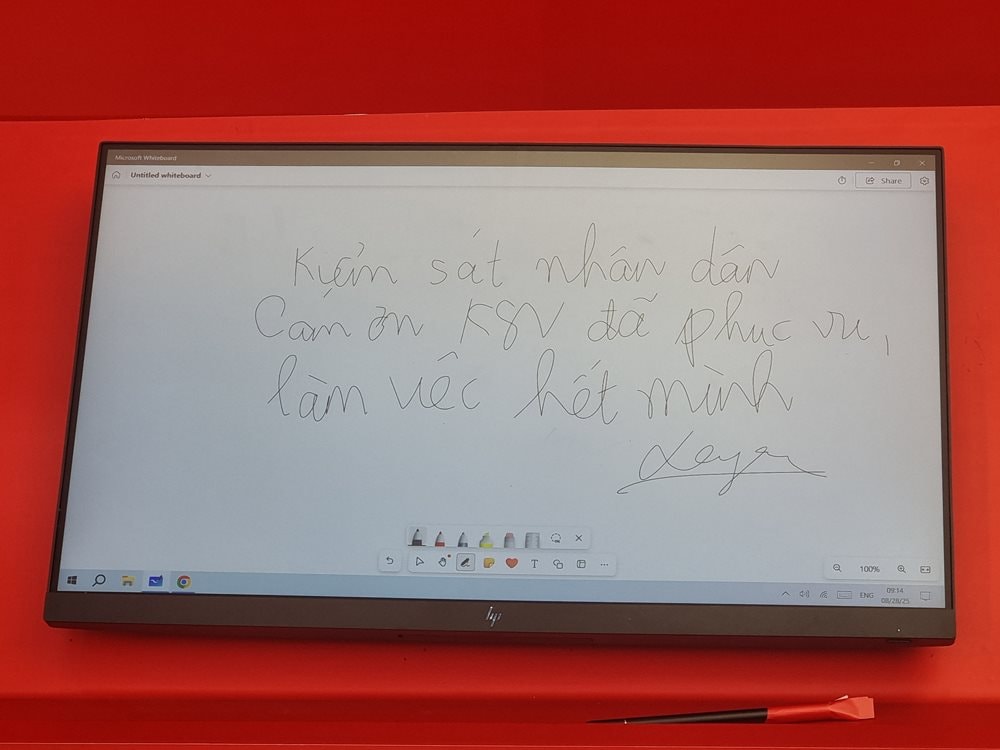 Microsoft Whiteboard
Untitled whiteboard
Share
Kiểm sát nhân dân
Cám ơn KSV đã phục vụ,
làm việc hết mình
100%
ENG
09:14
08/28/25
hp